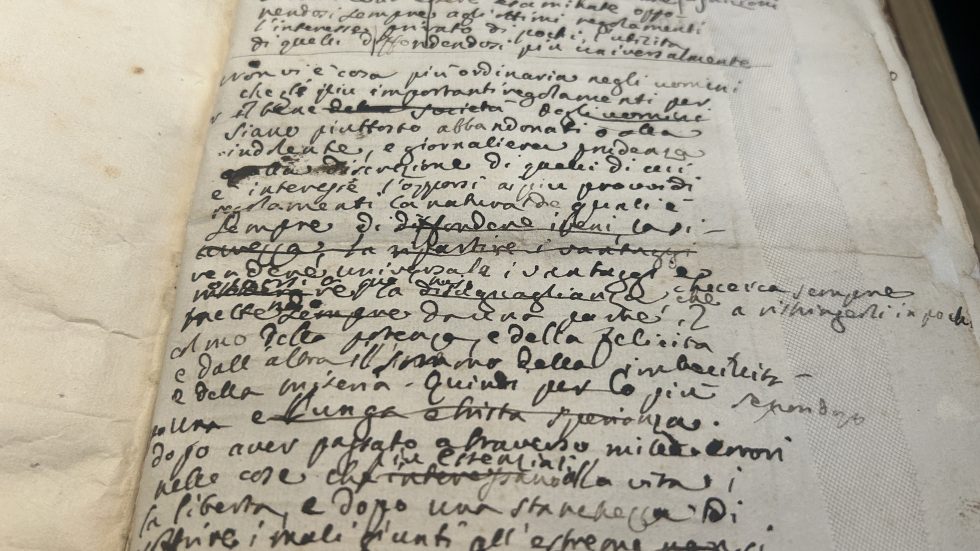 essere esaminate oppo-
nendosi sempre agli ottimi regolamenti
l'interesse privato di pochi, l'utilità
di quelli diffondendosi più universalmente
Non vi è cosa più ordinaria negli uomini
che gl'i più importanti regolamenti per
il bene della società degli uomini
siano piuttosto abbandonati o alla
indolente, e giornaliera prudenza
alla discrezione di quelli di cui
è interesse l'opporsi ai più provvidi
regolamenti la natura de quali è
sempre di diffondere i beni, la si-
curezza, la ripartire i vantaggi
rendere universale i vantaggi e
resistere a quello sforzo che cerca sempre
per la diseguaglianza che a ristringerli in pochi
mette sempre da una parte il
colmo della potenza, e della felicità
e dall'altra il sommo della imbecillità
e della miseria. Quindi per lo più
una e lunga e trista sperienza.
dopo aver passato attraverso mille errori
più essenziali
nelle cose che interessano alla vita, i
la libertà, e dopo una stanchezza di
soffrire i mali giunti all'estremo non si